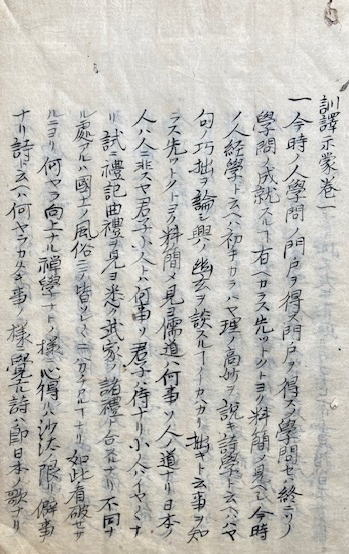 訓譯示蒙卷一
一今時ノ人學問ノ門戸ヲ得ス門戸ヲ得スノ學問セハ終ニソノ
學問ノ成就スルヿ有ヘカラス先ツトクトヨク料簡ノ見ヘシ今時
ノ人經學ト云ヘハ初キカラハヤ理ノ高妙ヲ説キ詩學ト云ヘハハヤ
句ノ巧拙ヲ論シ興ノ幽玄ヲ談スルヿノミカヽリ拙キト云事ヲ知
ラス先ツトクトヨク料簡ノ見ヨ儒道ハ何事ソ人ノ道ナリ日本ノ
人ハ人ニ非スヤ君子小人トハ何事ソ君子ハ侍ナリ小人ハイヤシキナ
リ試ニ禮記曲禮ヲ見ヨ悉ク武家ノ諸禮ト合スルナリ不同ナ
ル處アルハ國土ノ風俗ニテ皆ナリ如此看破セサ
ルニヨリ何ヤラ向上ナル禪學ナトノ樣ニ心得ルハ沙汰ノ限ノ僻事
ナリ詩ト云ヘハ何ヤラカタキ事ノ樣ニ覺ユ詩ハ即日本ノ歌ナリ